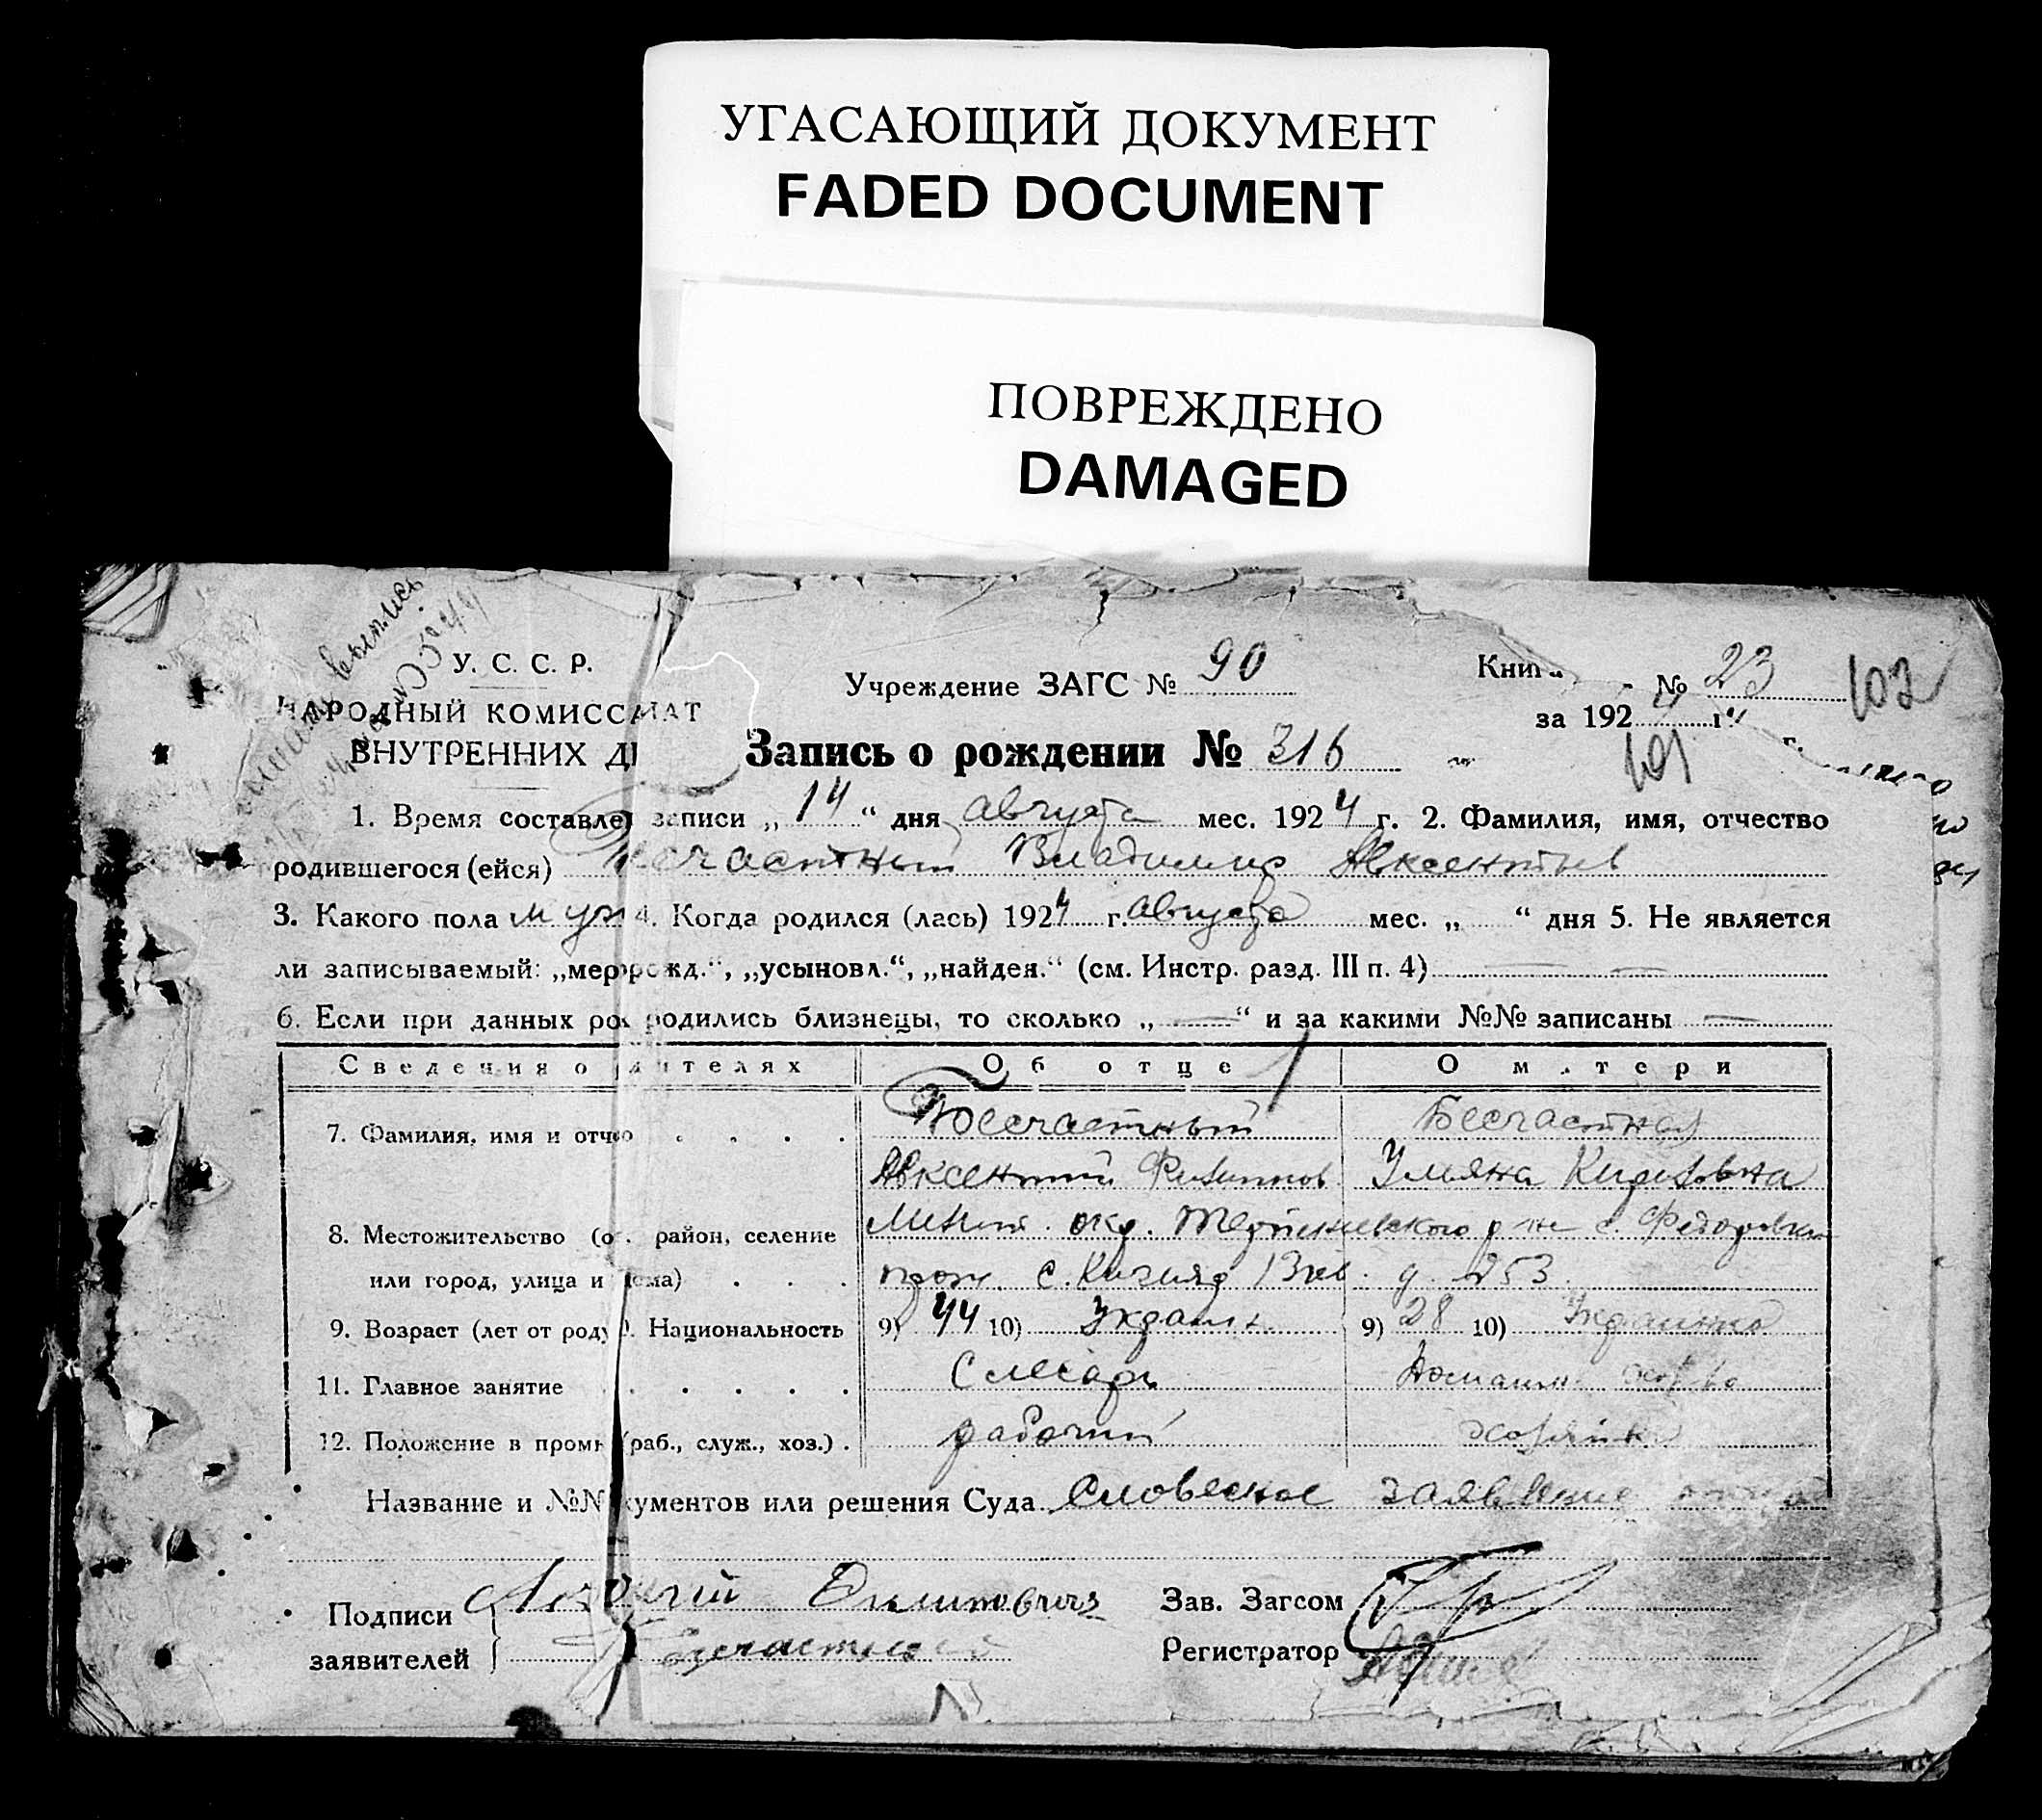 УГАСАЮЩИЙ ДОКУМЕНТ
FADED DOCUMENT
ПОВРЕЖДЕНО
DAMAGED
выпись
У. С. С. Р.
НАРОДНЫЙ КОМИССАРИАТ
ВНУТРЕННИХ Д
Учреждение ЗАГС № 90
Книга № 23
102
за 1924 г.
Запись о рождении № 316
101
1. Время составлен записи „14“ дня августа мес. 1924 г. 2. Фамилия, имя, отчество
родившегося (ейся) Бесчастный Владимир Авксентьев
3. Какого пола муж 4. Когда родился (лась) 1924 г. августа мес. „ “ дня 5. Не является
ли записываемый: „мерторожд.“, „усыновл.“, „найден.“ (см. Инстр. разд. III п. 4) — —
6. Если при данных род родились близнецы, то сколько „—“ и за какими №№ записаны —
Сведения о родителях Об отце О матери
7. Фамилия, имя и отчество Бесчастный Бесчастная
Авксентий Филиппов Ульяна Кириловна
8. Местожительство (о район, селение окр. р-на с. Федоровки
или город, улица и дома) прож. с. д. 253
9. Возраст (лет от роду) 10. Национальность 9) 44 10) Украин. 9) 28 10) Украинка
11. Главное занятие Слесарь Домашн. хоз-во
12. Положение в пром (раб., служ., хоз.) рабочий хозяйка
Название и №№ документов или решения Суда Словесное заявление
Подписи
заявителей Бесчастный
Зав. Загсом
Регистратор